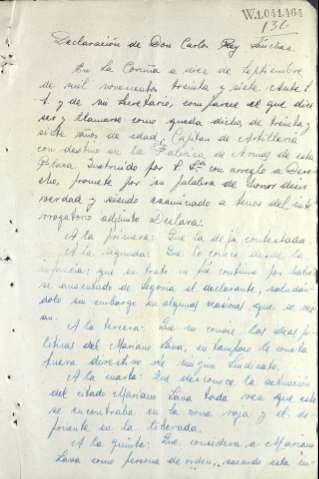 W.1.041.464
136
Declaración de Don Carlos Rey Sánchez
En La Coruña a doce de Septiembre
de mil novecientos treinta y siete ante S.S.
y de mi Secretario, comparece el que dice
ser y llamarse como queda dicho, de treinta y
siete años de edad, Capitan de Artilleria
con destino en la Fabrica de Armas de esta
Plaza. Instruido por S.Sª con arreglo a Dere-
cho, promete por su palabra de honor decir
verdad y siendo examinado a tenor del inte-
rrogatorio adjunto Declara:
A la primera: Que la deja contestada.
A la segunda: Que le conoce desde la
infancia; que su trato no fué continuo por haber
se ausentado de Segovia el declarante, saludan-
dole sin embargo en algunas ocasiones que se
an.
A la tercera: Que no conoce las ideas po-
liticas del Mariano Lana, ni tampoco le consta
fuera directivo de ningun Sindicato.
A la cuarta: Que desconoce la actuación
del citado Mariano Lana toda vez que este
se encontraba en la zona roja y el de-
ponente en la liberada.
A la quinta: Que considera a Mariano
Lana como persona de orden,